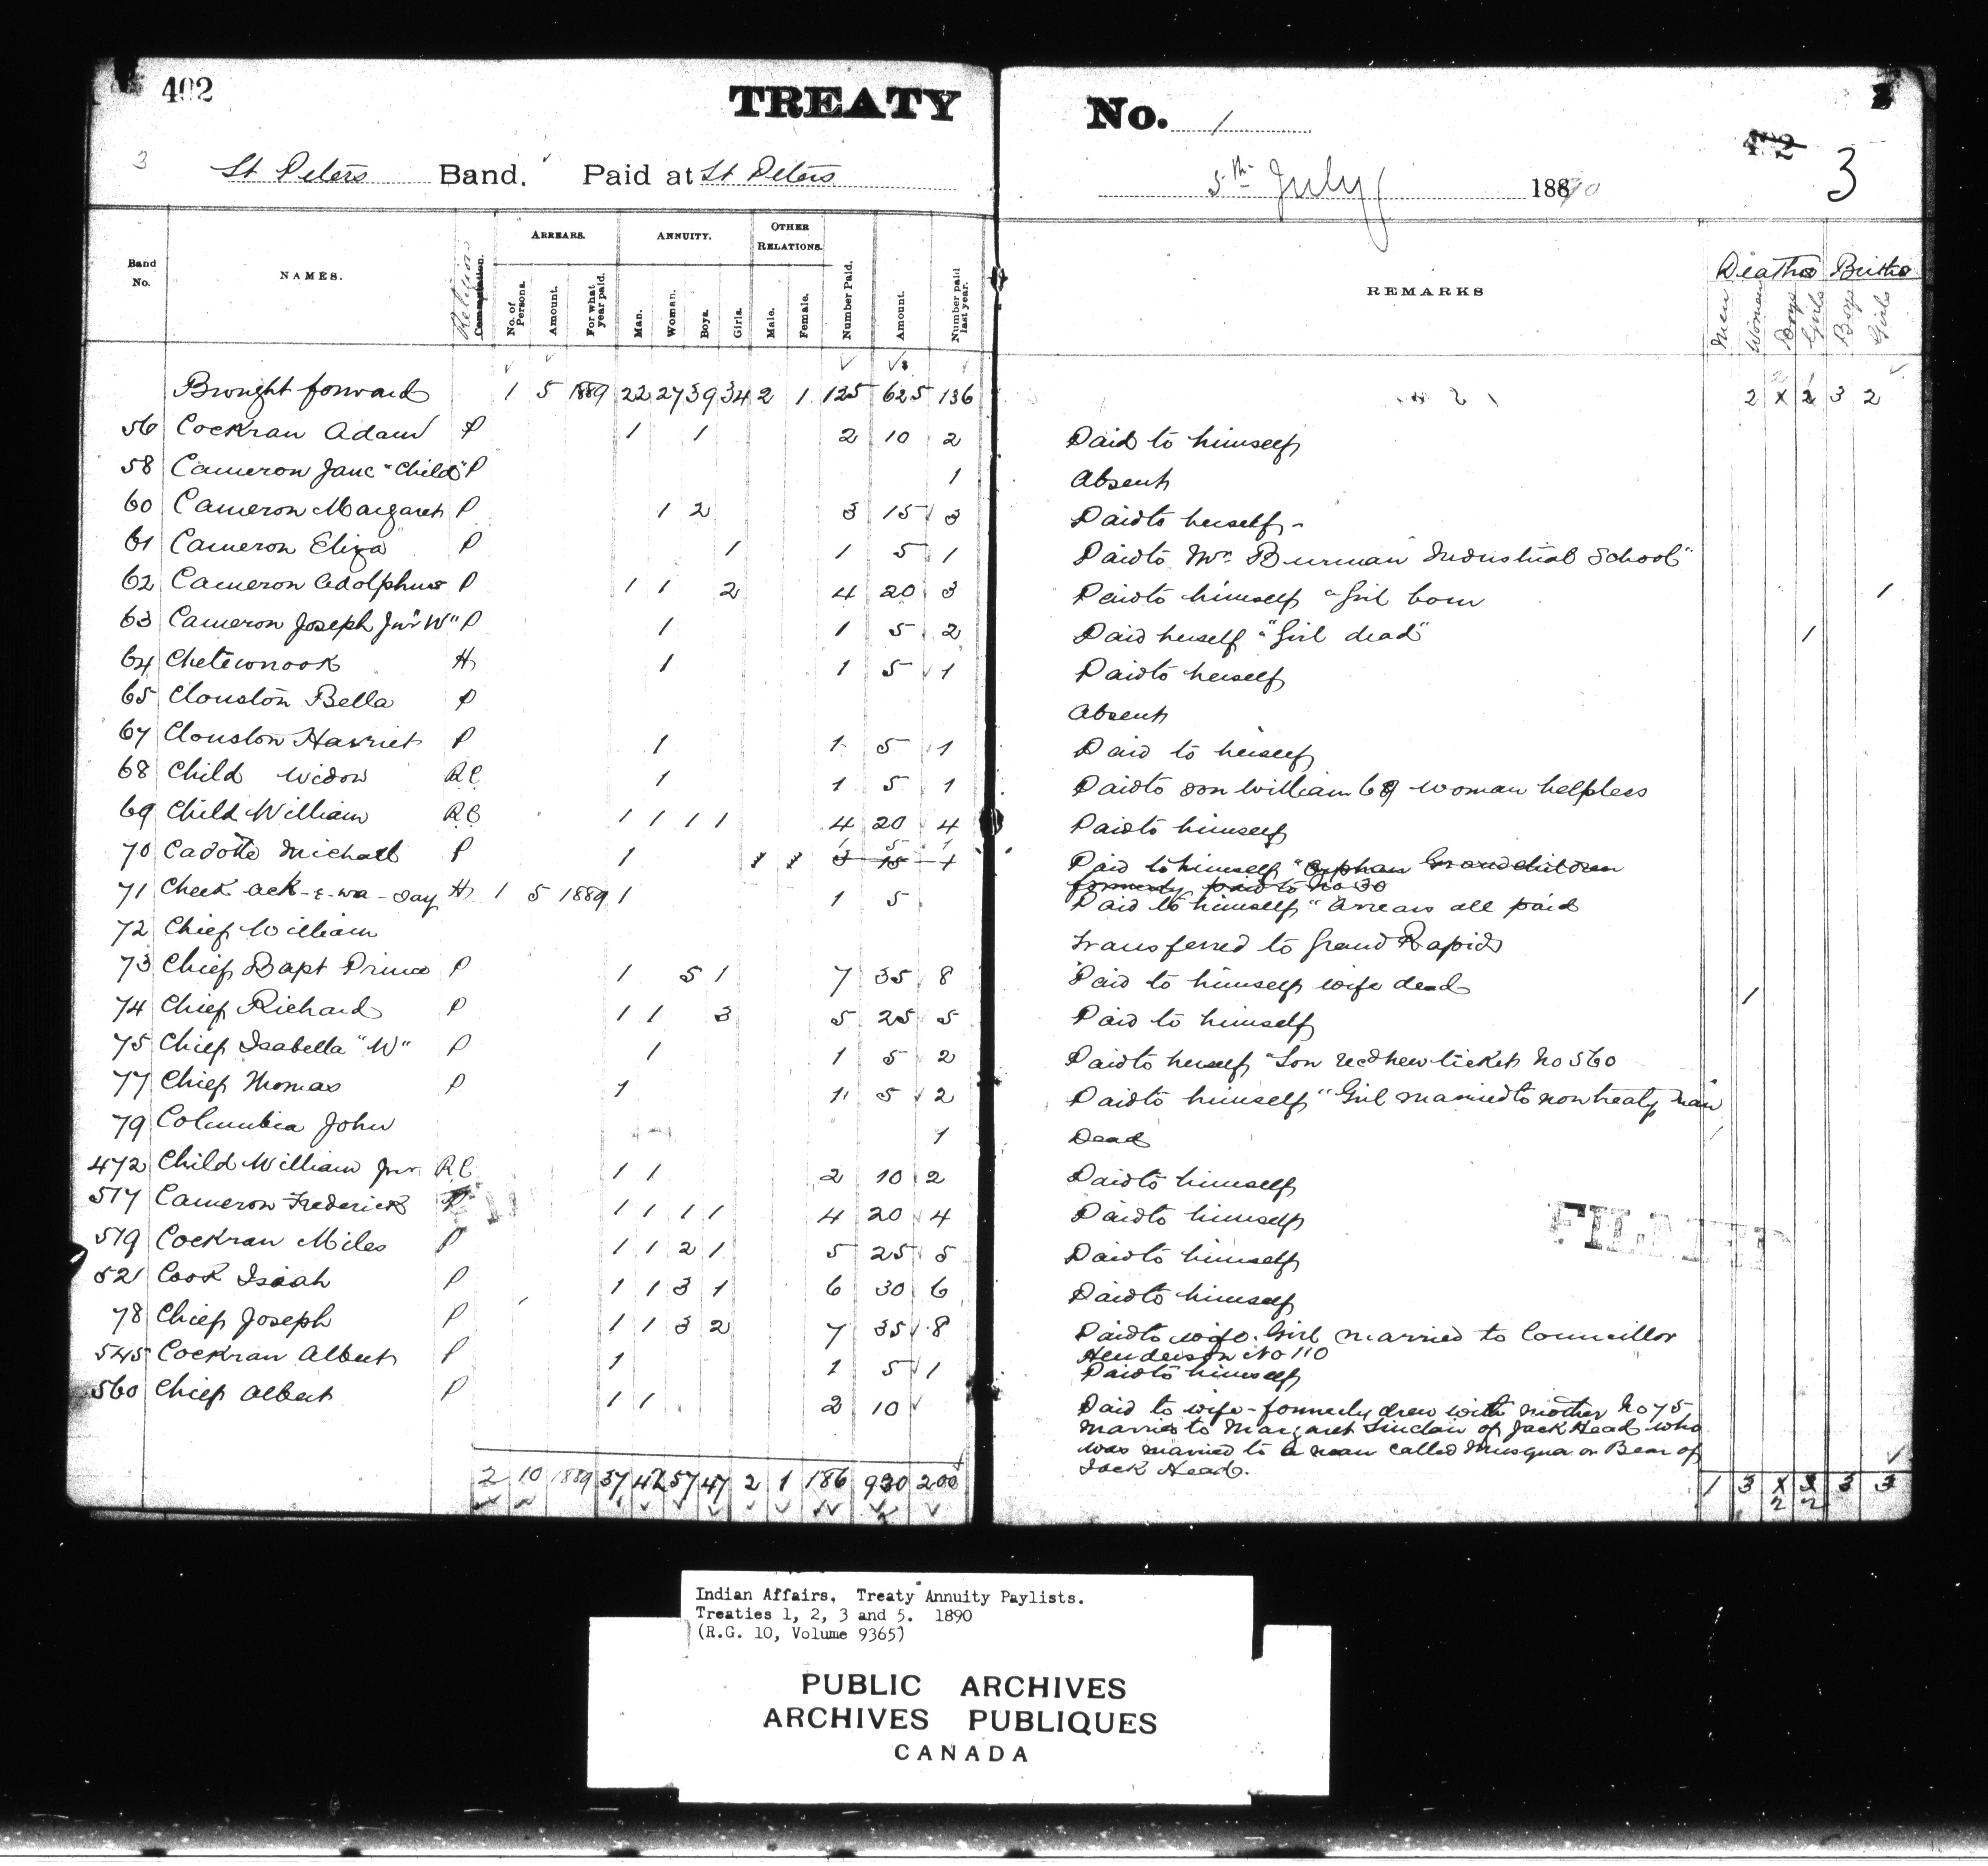 402
TREATY No. 1
3
3 St Peters Band. Paid at St Peters
5th July 1890
Band No. NAMES. Religion Commutation. ARREARS. No. of Persons. Amount. For what year paid. ANNUITY. Man. Woman. Boys. Girls. OTHER RELATIONS. Male. Female. Number Paid. Amount. Number paid last year. REMARKS Deaths Men Women Boys Girls Births Boys Girls
Brought forward 1 5 1889 22 27 39 34 2 1 125 625 136 2 2 3 2
56 Cockran Adam P 1 1 2 10 2 Paid to himself
58 Cameron Jane "Child" P 1 Absent
60 Cameron Margaret P 1 2 3 15 3 Paid to herself -
61 Cameron Eliza P 1 1 5 1 Paid to Mr. Burman Industrial School"
62 Cameron Adolphus P 1 1 2 4 20 3 Paid to himself "Girl born 1
63 Cameron Joseph Jnr "W" P 1 1 5 2 Paid herself "Girl dead" 1
64 Chetewnook H 1 1 5 1 Paid to herself
65 Clouston Bella P Absent
67 Clouston Harriet P 1 1 5 1 Paid to herself
68 Child Widow R.C. 1 1 5 1 Paid to son William 69 woman helpless
69 Child William R.C. 1 1 1 1 4 20 4 Paid to himself
70 Cadotte Michael P 1 1 1 3 15 1 1 5 1 Paid to himself "Orphan Grandchildren
formerly paid to No 30
71 Cheek-ack-e-wa-say H 1 5 1889 1 1 5 Paid to himself "Arrears all paid
72 Chief William Transferred to Grand Rapids
73 Chief Bapt Prince P 1 5 1 7 35 8 Paid to himself wife dead 1
74 Chief Richard P 1 1 3 5 25 5 Paid to himself
75 Chief Isabella "W" P 1 1 5 2 Paid to herself "Son recd new ticket No 560
77 Chief Thomas P 1 1 5 2 Paid to himself "Girl married to non treaty man
79 Columbia John 1 Dead 1
472 Child William Jnr. R.C. 1 1 2 10 2 Paid to himself
517 Cameron Frederick P 1 1 1 1 4 20 4 Paid to himself
519 Cockran Miles P 1 1 2 1 5 25 5 Paid to himself
521 Cook Isaah P 1 1 3 1 6 30 6 Paid to himself
78 Chief Joseph P 1 1 3 2 7 35 8 Paid to wife. Girl married to Councillor
Henderson No 110
545 Cockran Albert P 1 1 5 1 Paid to himself
560 Chief Albert P 1 1 2 10 Paid to wife - formerly drew with mother No 75
Married to Margaret Sinclair of Jack Head who
was married to a man called Musqua or Bear of
Jack Head.
2 10 1889 37 42 57 47 2 1 186 930 200 1 3 2 2 3 3
FILMED
Indian Affairs. Treaty Annuity Paylists.
Treaties 1, 2, 3 and 5. 1890
(R.G. 10, Volume 9365)
PUBLIC ARCHIVES
ARCHIVES PUBLIQUES
CANADA